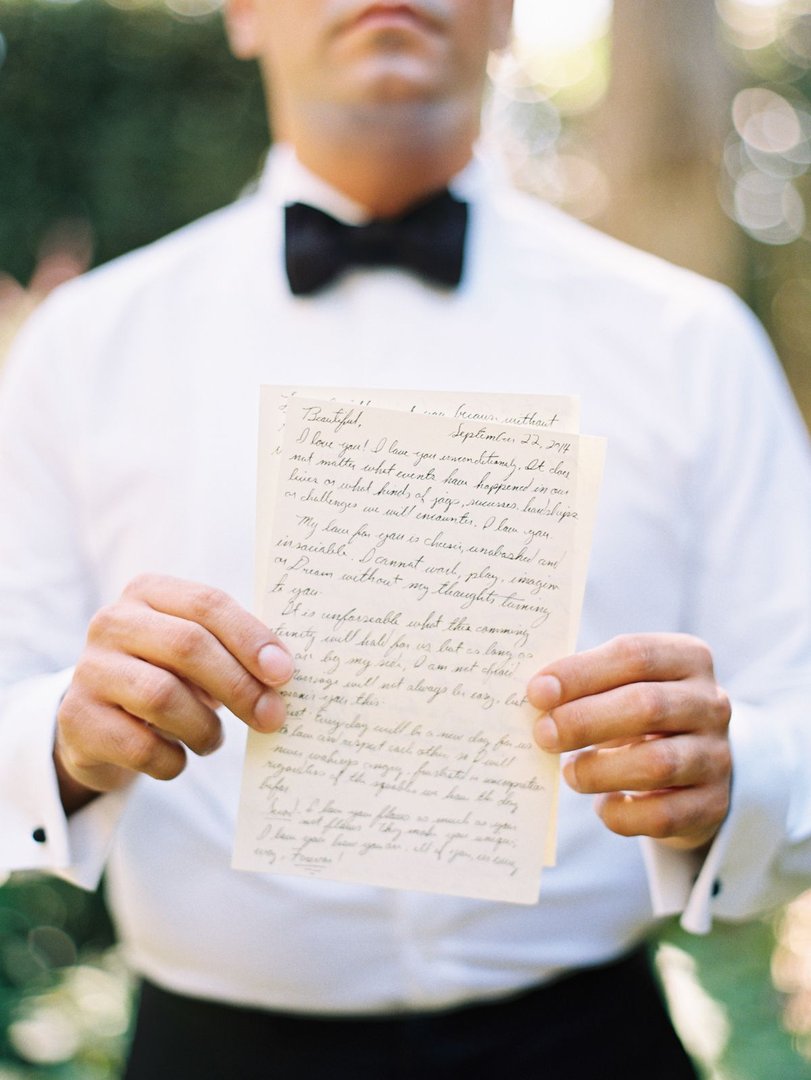 you because without
Beautiful,
September 22, 2014
I love you! I love you unconditionally. It does
not matter what events have happened in our
lives or what kinds of joys, successes, hardships
or challenges we will encounter. I love you.
My love for you is unabashed and
insaciable. I cannot work, play, imagine
or Dream without my thoughts turning
to you.
It is unforseable what this comming
will hold for us but as long as
by my side, I am not
will not always be easy, but
you this:
Every day will be a new day for us
to love and respect each other, so I will
never wakeup angry, frustrated or
regardless of the we have the day
before.
I love your flaws as much as your
not flaws. They make you unique.
I love you how you are. All of you, in every
way, Forever!